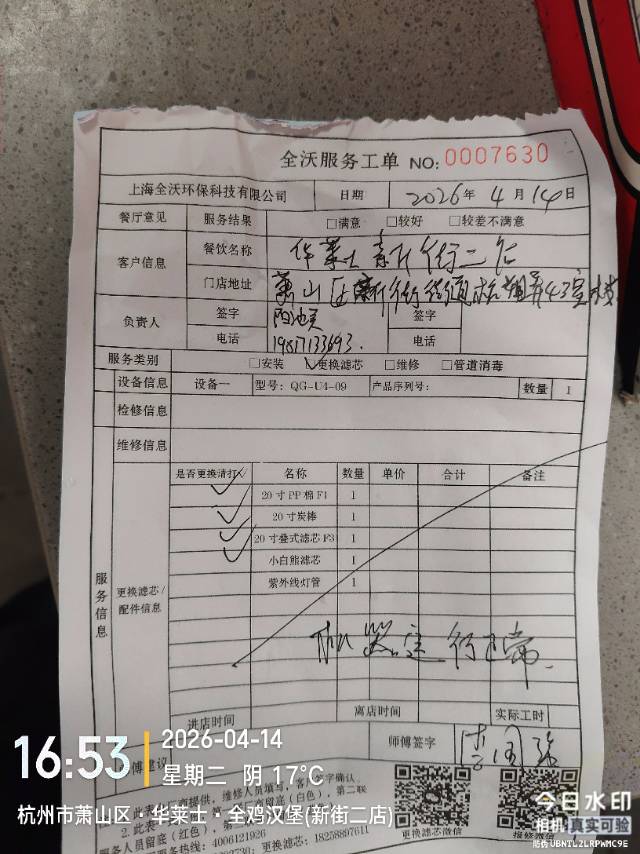 全沃服务工单 NO: 0007630
上海全沃环保科技有限公司 日期 2026年 4月 14日
餐厅意见 服务结果 □满意 □较好 □较差不满意
客户信息 餐饮名称 华莱士 街二仓
门店地址 萧山区新街街道
负责人 签字 签字
电话 19817133693. 电话
服务类别 □安装 ☑更换滤芯 □维修 □管道消毒
设备信息 设备一 型号: QG-U4-09 产品序列号: 数量 1
检修信息
维修信息
是否更换请打√ 名称 数量 单价 合计 备注
✓ 20寸PP棉F1 1
✓ 20寸炭棒 1
✓ 20寸叠式滤芯F3 1
✓ 小白熊滤芯 1
紫外线灯管 1
服务信息
更换滤芯/
配件信息
机器运行正常.
进店时间 离店时间 实际工时
师傅签字
傅建议
1. 此表 提供, 维修人员填写, 客户签字确认。
2. 此表 留底(白色), 第二联
服务人员留底(红色), 第
服务热线: 4006121926
02730; 更换滤芯: 18258897611
更换滤芯微信 报修微信
16:53 2026-04-14
星期二 阴 17℃
杭州市萧山区·华莱士·全鸡汉堡(新街二店)
今日水印
相机 真实可验
防伪 UBNTLZLRPWMC9E